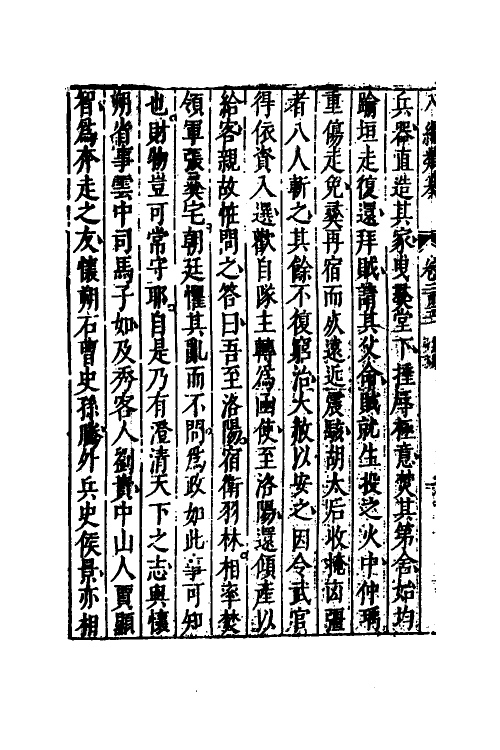 兵器直造其家曳彝堂下捶辱極意焚其第舍始均
踰垣走復還拜賊請其父命賊就生投之火中仲瑀
重傷走免彝再宿而死遠近震駭胡太后收掩凶彊
者八人斬之其餘不復窮治大赦以安之因令武官
得依資入選歡自隊主轉為函使至洛陽還傾產以
給客親故怪問之答曰吾至洛陽宿衛羽林相率焚
領軍張彝宅朝廷懼其亂而不問為政如此事可知
也財物豈可常守耶自是乃有澄清天下之志與懷
朔省事雲中司馬子如及秀容人劉貴中山人賈顯
智為奔走之友懷朔戶曹史孫騰外兵史侯景亦相